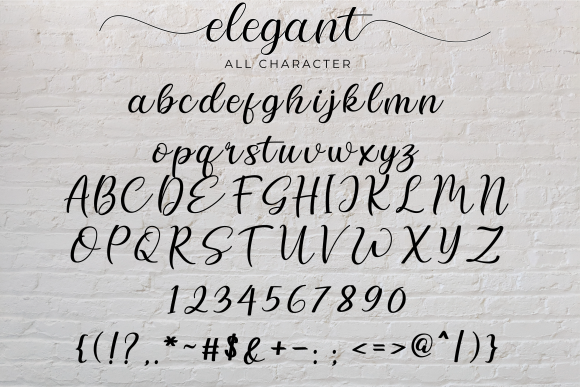 elegant
ALL CHARACTER
abcdefghijklmn
opqrstuvwxyz
ABCDEFGHIJKLMN
OPQRSTUVWXYZ
1234567890
{(!?,.*~#$&+-:;<=>@^/)}